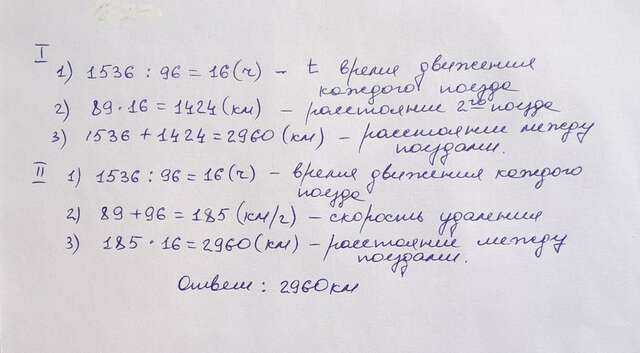 I
1) 1536 : 96 = 16 (ч) – t время движения
каждого поезда
2) 89 · 16 = 1424 (км) – расстояние 2го поезда
3) 1536 + 1424 = 2960 (км) – расстояние между
поездами.
II 1) 1536 : 96 = 16 (ч) – время движения каждого
поезда
2) 89 + 96 = 185 (км/ч) – скорость удаления
3) 185 · 16 = 2960 (км) – расстояние между
поездами.
Ответ : 2960 км